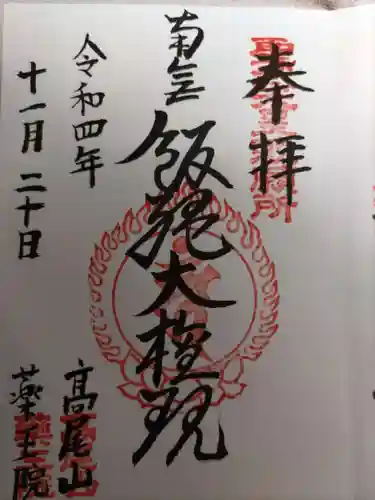 奉拝
南無飯縄大権現
令和四年
十一月二十日
高尾山
薬王院